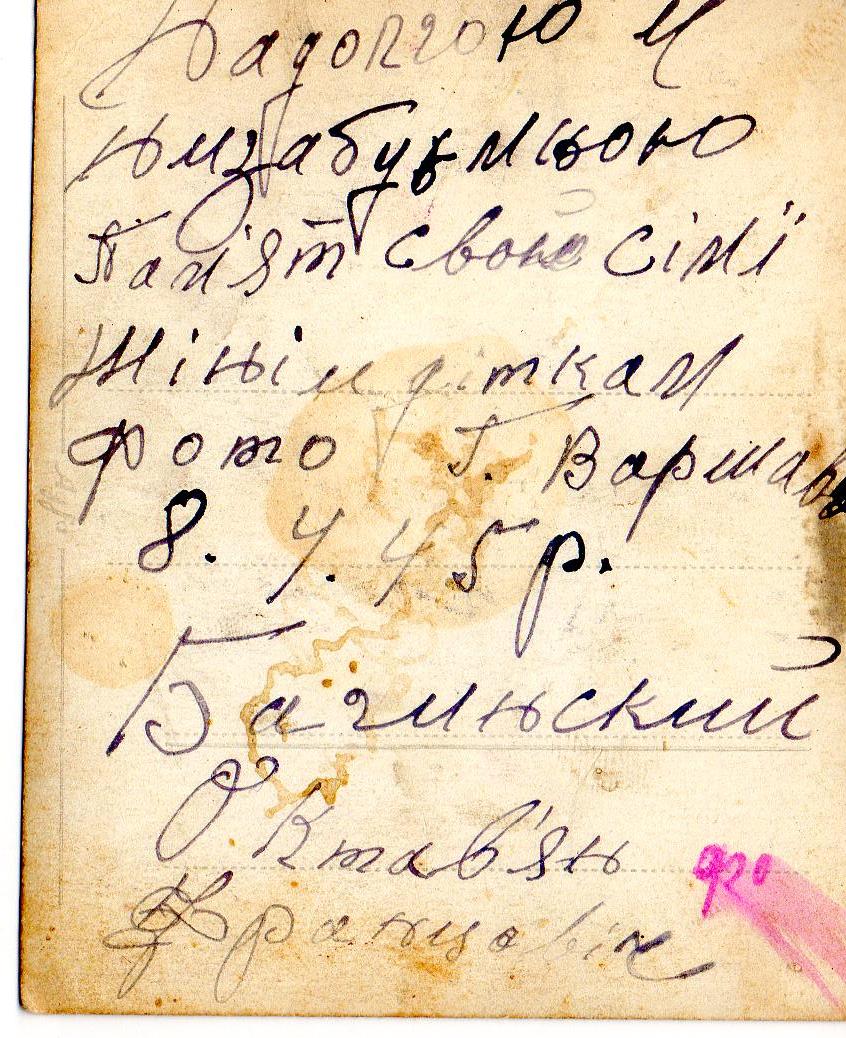 Надолгою И
Низабудьмною
Пам'ят своїе сімї
Жініи діткам
Фото Г. Варшава
8. 4. 45 р.
Багиньский
Октав'ян
Францовіч
920